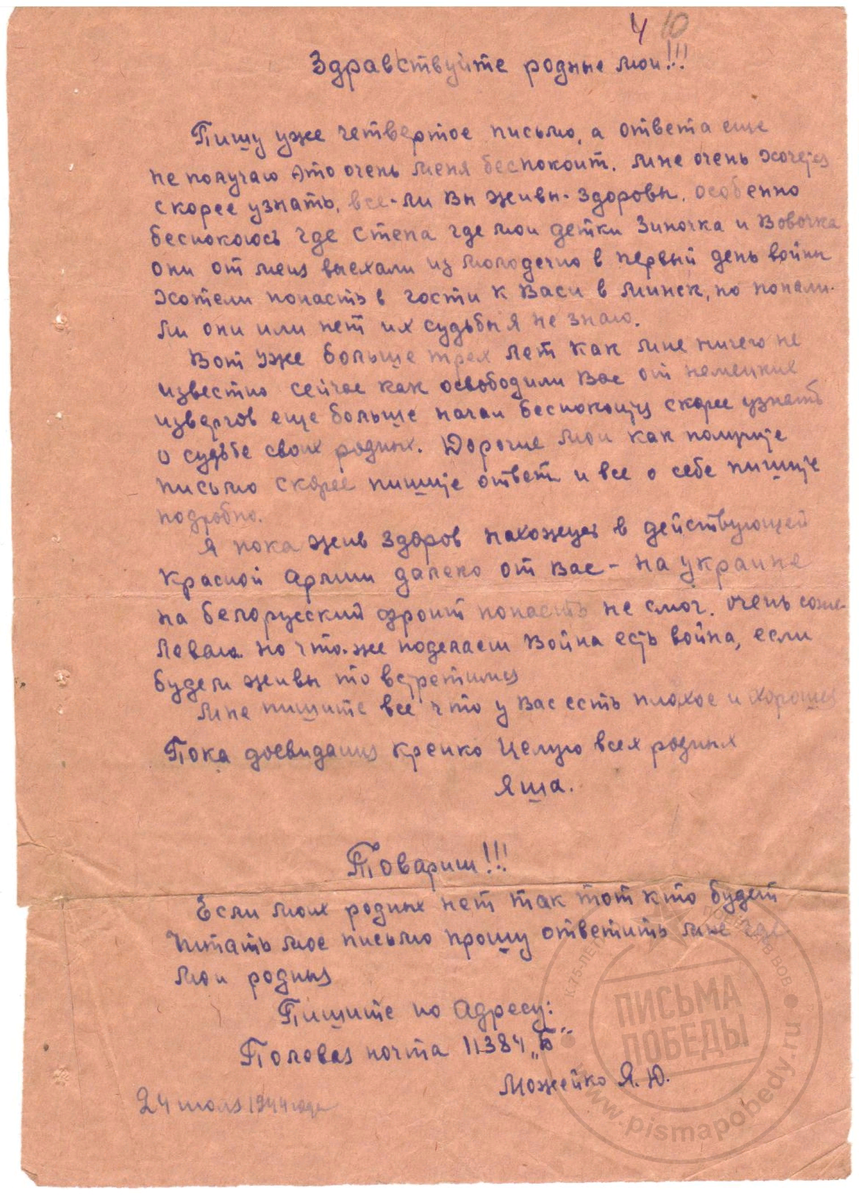 4 10
Здравствуйте родные мои!!!
Пишу уже четвертое письмо, а ответа еще
не получаю это очень меня беспокоит. Мне очень хочется
скорее узнать, все-ли Вы живы-здоровы. Особенно
беспокоюсь где Степа где мои детки Зиночка и Вовочка
они от меня выехали из Молодечно в первый день войны
Хотели попасть в гости к Васи в Минск, но попали-
ли они или нет их судьбы я не знаю.
Вот уже больше трех лет как мне ничего не
известно сейчас как освободили Вас от немецких
извергов еще больше начал беспокоица скорее узнать
о судьбе своих родных. Дорогие мои как получите
письмо скорее пишите ответ и все о себе пишите
подробно.
Я пока жив здоров нахожуся в действующей
Красной армии далеко от Вас - на украине
на белорусский фронт попасть не смог. очень сожа-
левала но что-же поделаеш Война есть война, если
будем живы то встретимся
Мне пишите все что у Вас есть плохое и хорошее
Пока досвидания крепко Целую всех родных
Яша.
Товариш!!!
Если моих родных нет так тот кто будет
Читать мое письмо прошу ответить мне где
мои родные
Пишите по Адресу:
Половая почта 11384 „Б"
Можейко Я. Ю.
24 июля 1944 года
К 75-ЛЕТИЮ ПОБЕДЫ В ВОВ
ПИСЬМА
ПОБЕДЫ
www.pismapobedy.ru